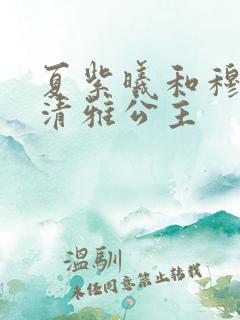 夏紫曦和穆
清雅公主
温馴
未经同意禁止转载